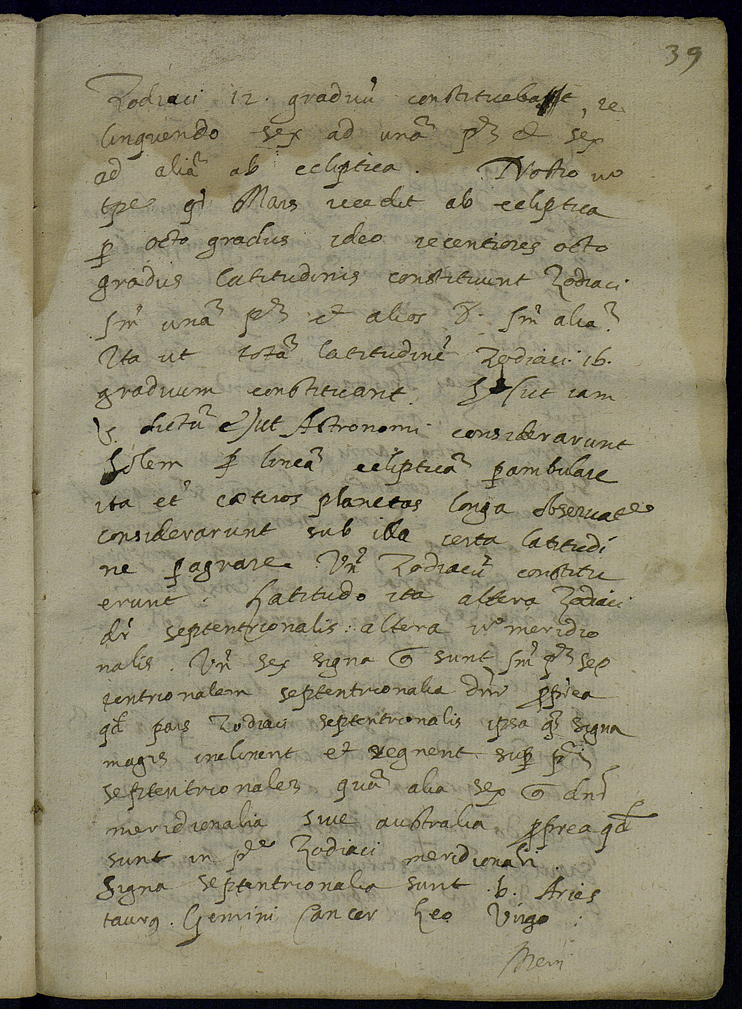 39
Zodiaci 12. graduũ constituebat, re
linquendo sex ad unã p̃m et sex
ad aliã ab ecliptica. Nostro vo
tpe qa Mars recedit ab ecliptica
ꝑ octo gradus ideo recentiores octo
gradus latitudinis constituunt Zodiaci
Sm̃ unã p̃m et alios 8. Sm̃ aliã.
Ita ut totã latitudinẽ Zodiaci. 16.
graduum constituant. sicut iam
dictũ e) ut Astronomi considerarunt
Solem ꝑ lineã eclipticã ꝑambulare
ita et cæteros planetas longa observate
considerarunt sub illa certa latitudi
ne ꝑagrare. Vñ Zodiacũ constitu
erunt: Latitudo ita altera Zodiaci
dr̃ septentrionalis: altera vo meridio
nalis. Vñ sex signa sunt Sm̃ p̃m sep
tentrionalem septentrionalia dnr̃ ꝓpterea
qd pars Zodiaci septentrionalis ipsa signa
magis inclinent et vegnent suꝑ p̃m
septentrionalem quã alia sex dnr̃
meridionalia sive australia ꝓpterea qd
sunt in pte Zodiaci meridionali.
Signa septentrionalia sunt .6. Aries
taurꝰ. Gemini Cancer Leo Virgo:
Meri